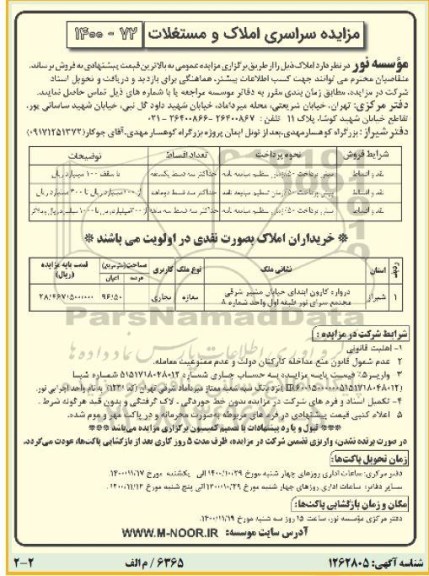 مزایده سراسری املاک و مستغلات ۷۲ - ۱۴۰۰
مؤسسه نور در نظر دارد املاک ذیل را از طریق برگزاری مزایده عمومی به بالاترین قیمت پیشنهادی به فروش برساند.
متقاضیان محترم می توانند جهت کسب اطلاعات بیشتر، هماهنگی برای بازدید و دریافت و تحویل اسناد
شرکت در مزایده، مطابق زمان بندی مقرر به دفاتر موسسه مراجعه یا با شماره های ذیل تماس حاصل نمایند.
دفتر مرکزی: تهران، خیابان شریعتی، محله میرداماد، خیابان شهید داود گل نبی، خیابان شهید ساسانی پور،
تقاطع خیابان شهید کوشا، پلاک ۱۱ تلفن: ۲۶۴۰۰۸۶۷ - ۲۶۴۰۰۸۶۶ - ۰۲۱
دفتر شیراز: بزرگراه کوهسار مهدی، بعد از تونل ایمان پروژه بزرگراه کوهسار مهدی، آقای جوکار (۰۹۱۷۱۲۵۱۳۷۳)
شرایط فروش نحوه پرداخت تعداد اقساط توضیحات
نقد و اقساط حداکثر سه قسط یکماهه تا سقف ۱۰۰ میلیارد ریال
نقد و اقساط حداکثر سه قسط دوماهه
نقد و اقساط حداکثر سه قسط سه ماهه
※ خریداران املاک بصورت نقدی در اولویت می باشند ※
ردیف استان نشانی ملک نوع ملک کاربری مساحت (متر مربع) عرصه اعیان قیمت پایه مزایده (ریال)
۱ شیراز دروازه کازرون ابتدای خیابان منتشر شرقی مجتمع سرای نور طبقه اول واحد شماره ۸ مغازه تجاری ۹۶/۵۰
ParsNamadData
شرایط شرکت در مزایده:
۱- اهلیت قانونی
۲- عدم شمول قانون منع مداخله کارکنان دولت و عدم ممنوعیت معامله.
۳- واریز ۵٪ قیمت پایه مزایده به حساب جاری شماره
۴- تکمیل اسناد و فرم های شرکت در مزایده بدون خط خوردگی، لاک گرفتگی و بدون قید هرگونه شرط.
۵- اعلام کتبی قیمت پیشنهادی در فرم های مربوطه و بصورت محرمانه و در پاکت لاک و مهر موم شده.
*** قبول و یا رد پیشنهادات با تصمیم کمیسیون برگزاری مزایده می باشد ***
در صورت برنده نشدن، واریزی تضمین شرکت در مزایده، ظرف مدت ۵ روز کاری بعد از بازگشایی پاکت‌ها، عودت می‌گردد.
زمان تحویل پاکت‌ها:
دفتر مرکزی: ساعات اداری روزهای چهار شنبه مورخ ۱۴۰۰/۱۰/۲۹ الی یکشنبه مورخ ۱۴۰۰/۱۱/۱۷
سایر دفاتر: ساعات اداری روزهای چهار شنبه مورخ ۱۴۰۰/۱۰/۲۹ الی پنج شنبه مورخ ۱۴۰۰/۱۱/۱۴
مکان و زمان بازگشایی پاکت‌ها:
دفتر مرکزی مؤسسه نور، ساعت ۱۵ روز سه شنبه مورخ ۱۴۰۰/۱۱/۱۹
آدرس سایت موسسه: WWW.M-NOOR.IR
شناسه آگهی: ۱۲۶۲۸۰۵ ۶۳۶۵ / م الف ۲-۲